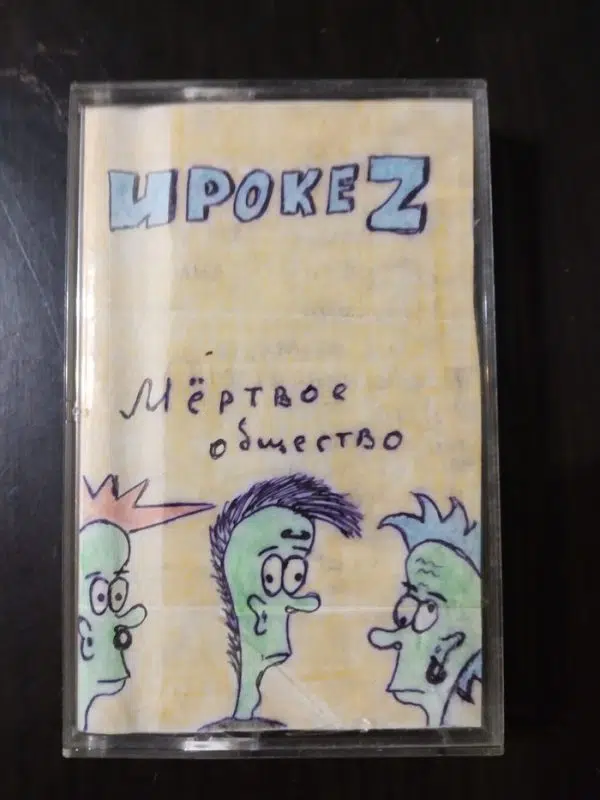 ИРОКЕZ
Мёртвое
общество